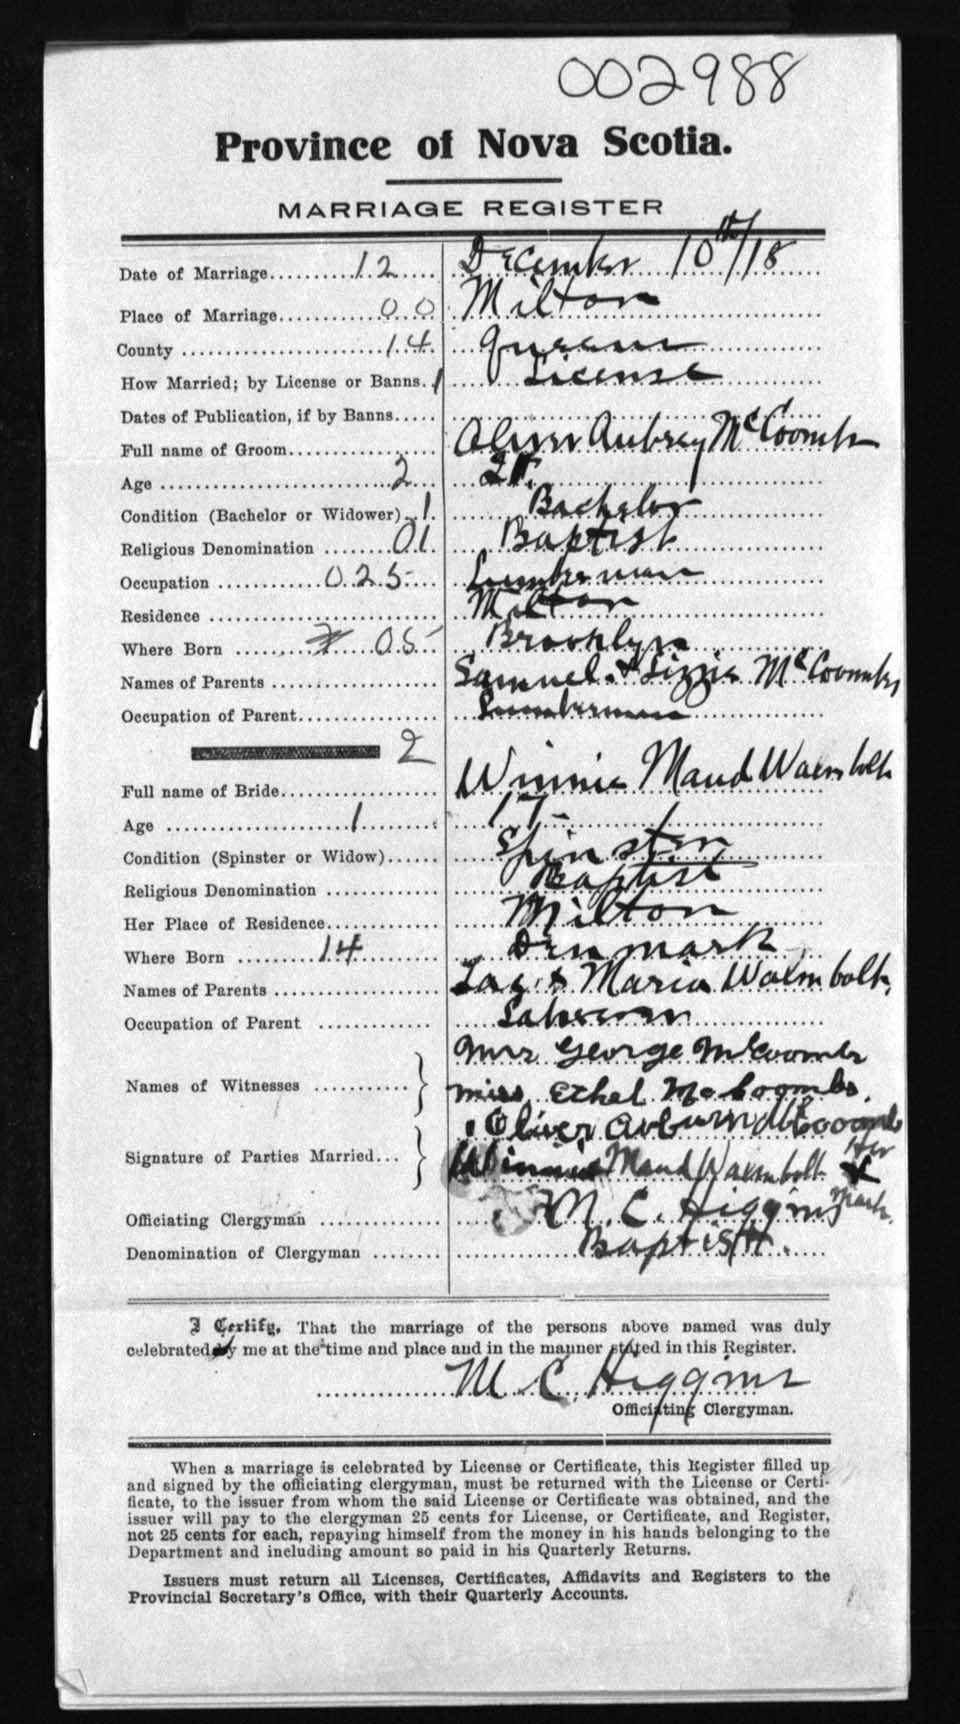 002988
Province of Nova Scotia.
MARRIAGE REGISTER
Date of Marriage 12 December 10th/18
Place of Marriage 00 Milton
County 14 Queens
How Married; by License or Banns. 1 License
Dates of Publication, if by Banns
Full name of Groom Oliver Aubrey McCoombs
Age 2
Condition (Bachelor or Widower) 1. Bachelor
Religious Denomination 01 Baptist
Occupation 025 Lumberman
Residence Milton
Where Born 05 Brooklyn
Names of Parents Samuel & Lizzie McCoombs
Occupation of Parent Lumberman
2
Full name of Bride Winnie Maud Warmbolt
Age 1 17
Condition (Spinster or Widow) Spinster
Religious Denomination Baptist
Her Place of Residence Milton
Where Born 14 Denmark
Names of Parents & Maria Walmbolt,
Occupation of Parent
Names of Witnesses Mrs George McCoombs
Miss Ethel McCoombs.
Oliver Auburn McCoombs
Signature of Parties Married... Winnie Maud Warmbolt Her X Mark.
Officiating Clergyman M. C. Higgins
Denomination of Clergyman Baptist.
I Certify, That the marriage of the persons above named was duly
celebrated by me at the time and place and in the manner stated in this Register.
M C. Higgins
Officiating Clergyman.
When a marriage is celebrated by License or Certificate, this Register filled up
and signed by the officiating clergyman, must be returned with the License or Certi-
ficate, to the issuer from whom the said License or Certificate was obtained, and the
issuer will pay to the clergyman 25 cents for License, or Certificate, and Register,
not 25 cents for each, repaying himself from the money in his hands belonging to the
Department and including amount so paid in his Quarterly Returns.
Issuers must return all Licenses, Certificates, Affidavits and Registers to the
Provincial Secretary's Office, with their Quarterly Accounts.